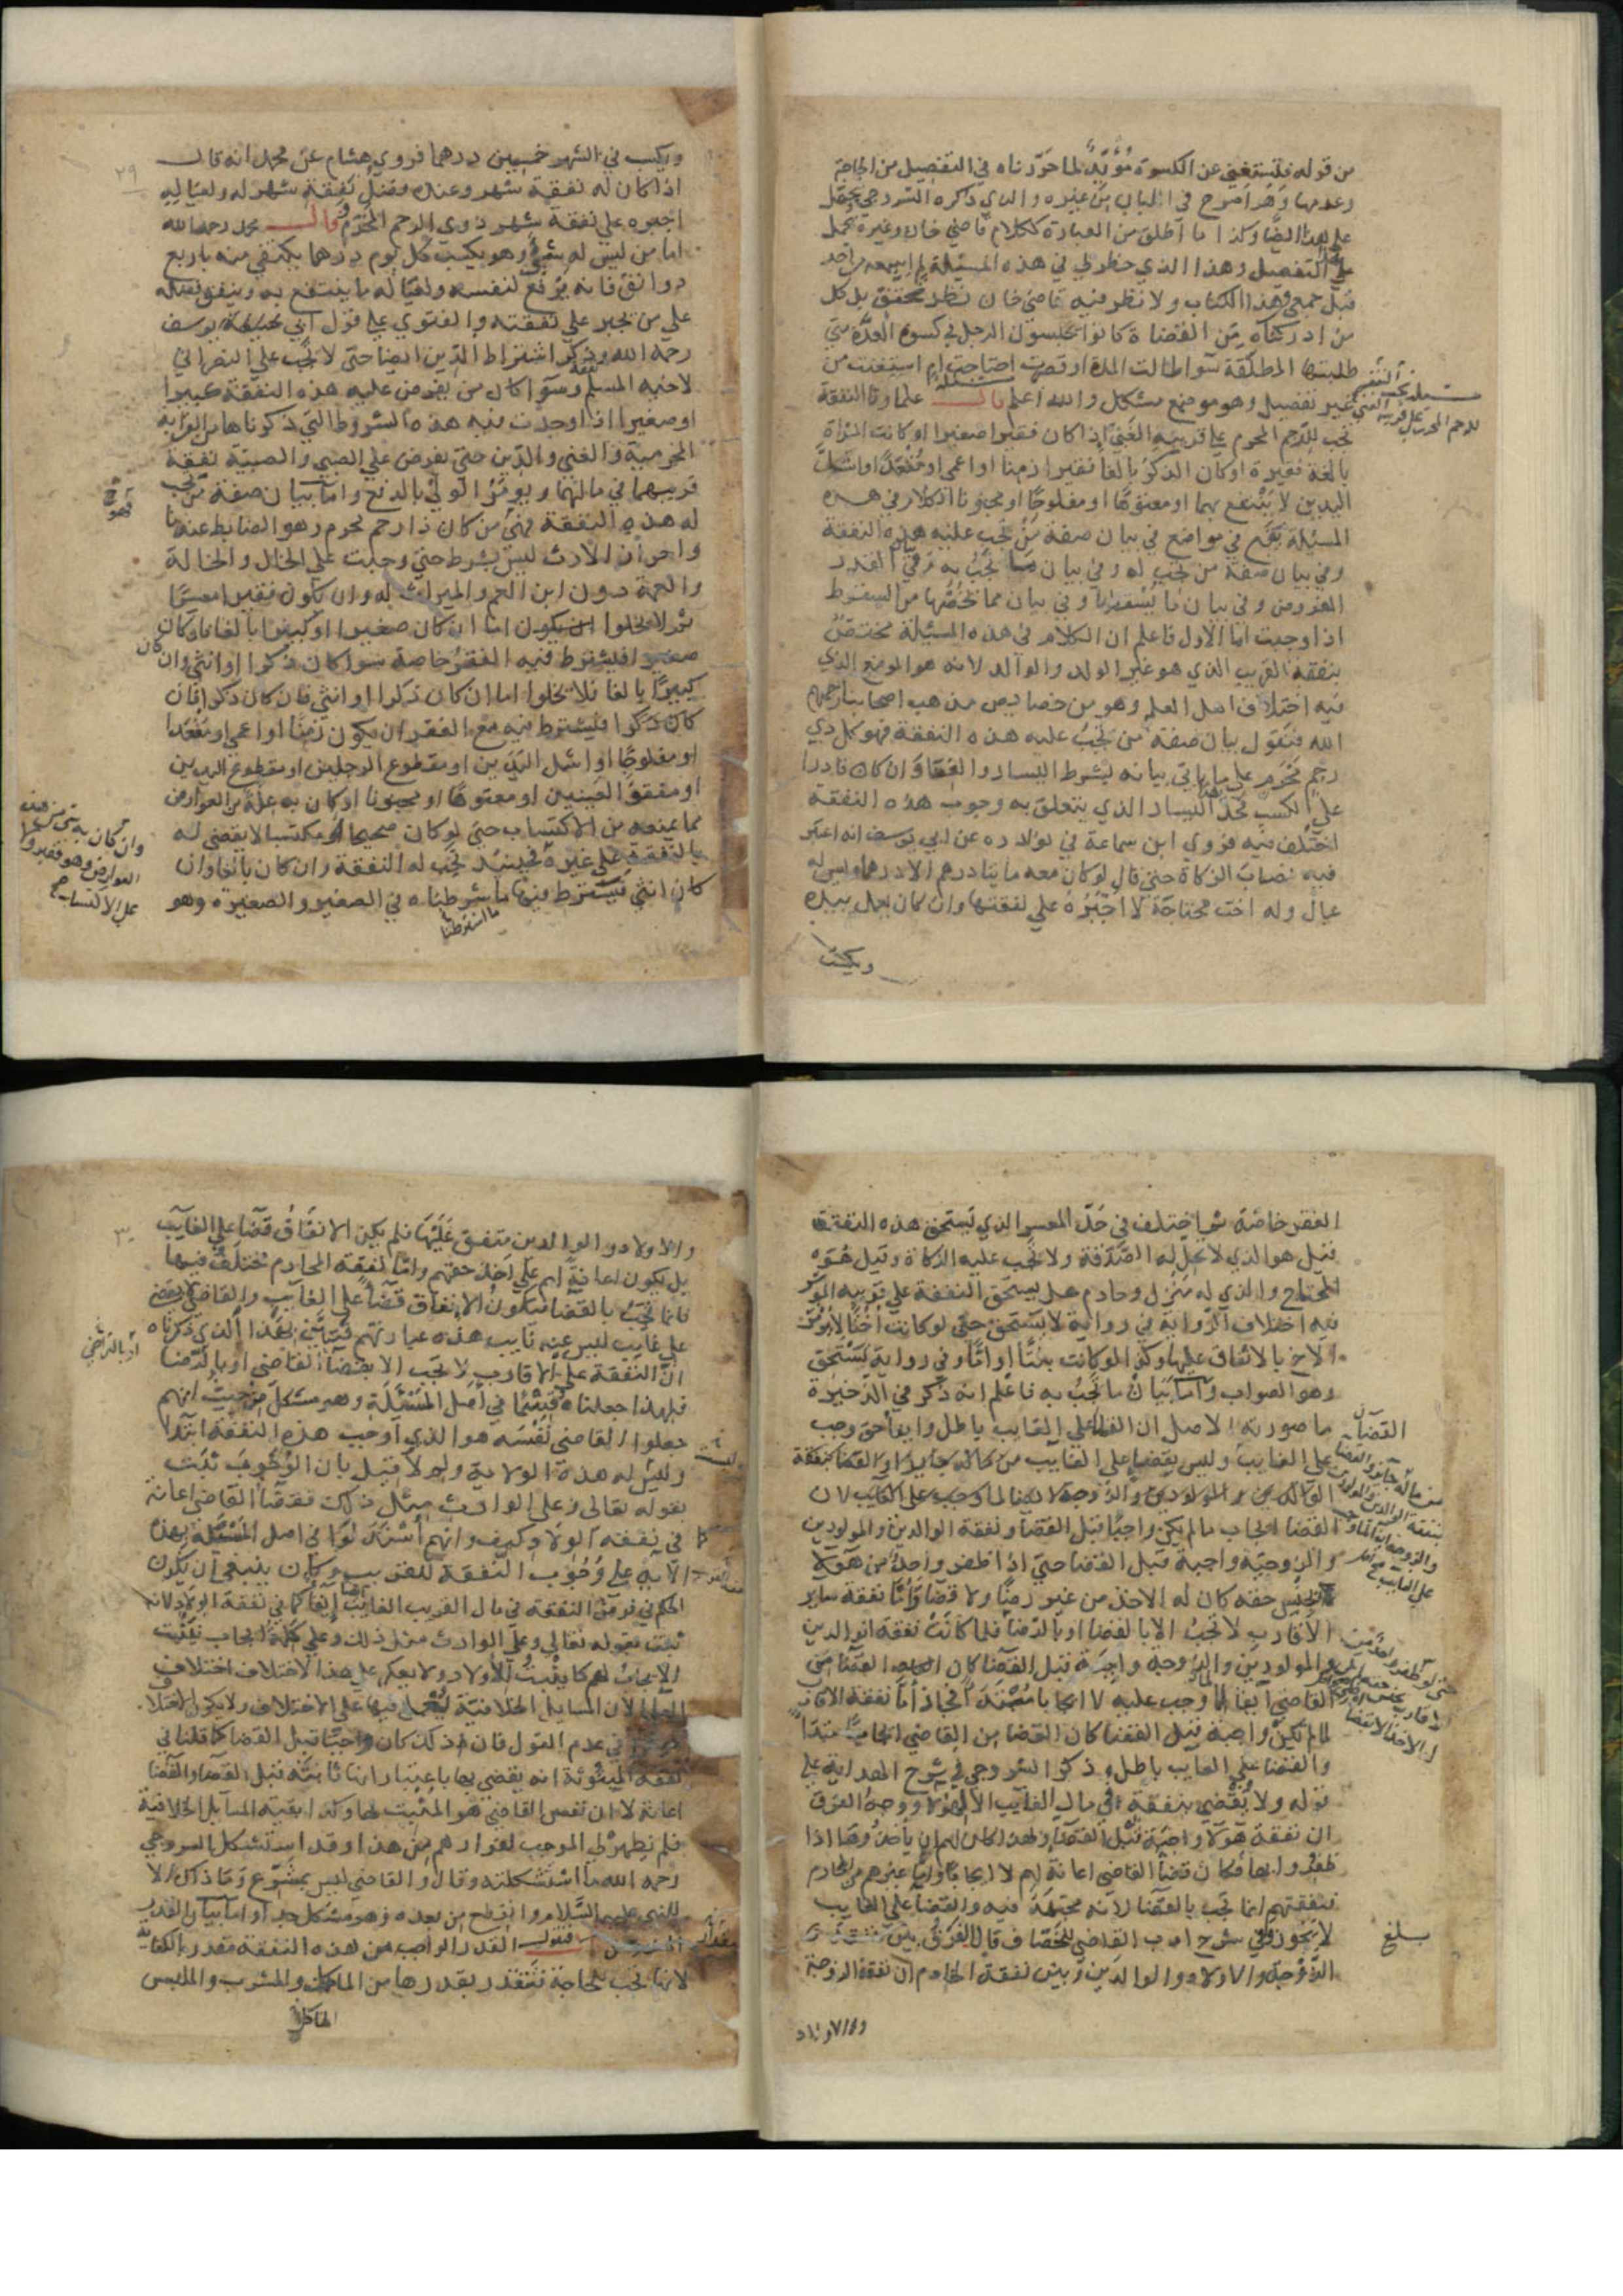 من قوله فلتستغني عن الكسوة مُؤَيِّدٌ لما حَرَّرناه في التفصيل من الحاجة
وعدمها وهَو اَصرح في الباب مِن غيره والذي ذكره السروجي يحمل
على هذا ايضًا وكذا ما اطلق من العبارة ككلام قاضي خان وغيره يحمل
على التفصيل وهذا الذي حظر لي في هذه المسئلة لم اسمعه من احد
قبل جمعي هذا الكتاب ولا نظر فيه قاضي خان نظر محقق بل كل
من ادركناه مِن القضاة كانوا يحبسون الرجل في كسوة العدّة متى
طلبتها المطلّقة سوآ طالت المدة او قصرت احتاجت ام استغنت من
غير تفصيل وهو موضع مشكل والله اعلم مسئلة قال علماونا النفقة
تجب للرحم المحرم على قريبه الغني اذا كان فقيرا صغيرا او كانت امراة
بالغة فقيرة او كان الذكرُ بالغا فقيرا زمِنا او اعمى او مُقعَدًا او اشلّ
اليدين لا يَنتفع بهما او معتوهًا او مفلوجًا او مجنونا الكلام في هذه
المسئلة يقع في مواضع في بيان صفة مَن تجب عليه هذه النفقة
وفي بيان صفة من تجب له وفي بيان ما تجب به وفي بيان القدر
المفروض وفي بيان ما يُسقطها وفي بيان مما يخصُّها من السقوط
اذا وجبت اما الاول فاعلم ان الكلام في هذه المسئلة مختصّ
بنفقة القريب الذي هو غير الولد والوالد لانه هو الموضع الذي
فيه اختلاف اهل العلم وهو من خصايص مذهب اصحابنا رحمهم
الله فنقول بيان صفة من تجبُ عليه هذه النفقة فهو كل ذي
رحِم مَحرَم على ما ياتي بيانه بشرط اليسار والغنا وان كان قادرا
على الكسب فحدّ اليسار الذي يتعلق به وجوب هذه النفقة
اختُلف فيه فروي ابن سماعة في نوادره عن ابي يوسف انه اعتبر
فيه نصابَ الزكاة حتى قال لو كان معه مايتا درهم الا درهما وليس له
عيال وله اخت محتاجة لا اُجْبِرُهُ على نفقتها وان كان يعمل بيده
ويكتسب
ويكسب في الشهر خمسين درهما فروي هشام عن محمد انه قال
اذا كان له نفقة شهر وعنده فضل نفقة شهر له ولعياله
اجبره على نفقة شهر ذوي الرحم المحرم وقال محمد رحمه الله
اما من ليس له شيءٌ وهو يكسب كل يوم درهما يكتفي منه باربع
دوانق فانه يرفع لنفسه ولعياله ما ينتفع به وينفق فضله
على من يجبر على نفقته والفتوي على قول ابي يوسف
رحمه الله وذكر اشتراط الدّين ايضا حتى لا تجب على النصراني
لاخيه المسلم وسوآ كان من يفرض عليه هذه النفقة كبيرا
او صغيرا اذا وجدت فيه هذه الشروط التي ذكرناها من القرابة
المحرمية والغني والدّين حتى يفرض على الصبي والصبيّة نفقة
قريبهما في مالهما ويومر الولي بالدفع واما بيان صفة من تجب
له هذه النفقة فهي من كان ذا رحم محرم وهو الضابط عندنا
واحرازُ الارث ليس بشرط حتى وجبت على الخال والخالة
والعمة دون ابن العم والميراث له وان يكون فقيرا معسرًا
ثم لا يخلوا اما ان كان صغيرا او كبيرا بالغا فان كان
صغيرا فليشترط فيه الفقرُ خاصة سوا كان ذكرا او انثى وان كان
كبيرًا بالغا فلا يخلوا اما ان كان ذكرا او انثى فان كان ذكرا فان
كان ذكرا فيشترط فيه مع الفقر ان يكون زمِنًا او اعمى او مُقعَدا
او مفلوجًا او اشل اليدين او مقطوع الرجلين او مقطوع اليدين
او مفقوَّ العينين او معتوهًا او مجنونا او كان به علّة من العوارض
مما يمنعه من الاكتساب حتى لو كان صحيحا او مكتسبا لا يقضي له
بالنفقة على غيره فحينيذ تجب له النفقة وان كان بالغا وان
كان انثى فيشترط فيها ما شرطناه في الصغير والصغيرة وهو
ما اشترطنا
الفقر خاصّة ثم اختلف في حَدّ المعسر الذي يَستحق هذه النفقة
فقيل هو الذي لا تحل له الصَّدَقة ولا تَجب عليه الزكاة وقيل هُوَ
المحتاج والذي له مَنزل وخادم هل يستحق النفقة على قريبه الموسر
فيه اختلاف الرّواية في رواية لا يَستحق حتى لو كانت اُختًا لا يُومَر
الاخ بالانفاق عليها وكذا لو كانت بنتًا او امًا وفي رواية يَسْتَحق
وهو الصواب وَأما بَيَانُ ما تَجبُ به فاعلم انه ذُكر في الذّخيرة
ما صورته الاصل ان القضا على الغايب باطل وايفا حق وجب
على الغايب وليس بقضا على الغايب كنفقة
الوالدين والمولودين والزوجة لا لما وجب على الغايب لان
القضا ايجاب ما لم يكن واجبًا قبل القضا ونفقة الوالدين والمولودين
والزوجيّة واجبة قبل القضا حتى اذا ظفر واحدٌ من هَوْلا
بجنس حقه كان له الاخذ من غير رِضًا ولا قضا وَأَمَّا نفقة ساير
الأقارب لا تجبُ الا بالقضا او بالرّضا فلما كانت نفقة الوالدين
والمولودين والزوجة واجِبَة قبل القضا كان القضا مِن
القاضي ايفا لما وجب عليه لا ايجابا مُبْتَدَأً
لما لم تكن واجبة قبل القضا كان القضا من القاضي ايجابًا مبتدَاً
والقضا على الغايب باطل وذكر السروجي في شرح الهداية على
قوله ولا يُقضي بنفقةٍ في مال الغايب الا لهؤلا ووجهُ الفرق
ان نفقة هَوْلآ واجبَة قبْل القضآ ولهذا كان لهم ان ياخذُوها اذا
ظفروا بها فكان قضآ القاضي اعانة لهم لا ايجابًا وامّا غيرهم من المحارم
فنفقتهم انما تجب بالقضا لانه مجتهَدٌ فيه والقضآ على الغايب
لا يَجوز وفي شرح ادب القاضي للخصّاف قال الفَرْقُ بين
الزّوْجَة والاولاد والوالدين وبين نفقة المحارم ان نفقة الزوجة
والاولاد
بلغ
والاولاد والوالدين متفق عَلَيْهَا فلم يكن الانفاق قضآ على الغايب
بل يكون اعانةً لهم على اخذ حقهم وامّا نفقة المحارم مختلفٌ فيها
فانما تجبُ بالقضا فيكون الانفاق قضآ على الغايب والقاضي لا يقضي
على غايب ليس عنه نايب هذه عبارتهم فتبيّن بهذا الذي ذكرناه
انّ النفقة على الاقارب لا تجب الا بقضآ القاضي او بالرّضا
فلهذا جعلناه قيْدًا في اصْل المَسْئَلة وهو مشكل من حيث انهم
جعلوا القاضي نَفْسَه هو الذي اَوجب هذه النفقة ابتدَا
وليسَ له هذه الولاية ولم لا قيل بان الوُجُوبَ ثبَت
بقوله تعالى وعلى الوارث مثل ذلك فقضآ القاضي اعانة
في نفقة الولاد وكيف وانهم اسْتدَلوا في اصل المَسْئلة بهذه
الآية على وُجُوب النّفقة للقريب وكان ينبغي ان يكون
الحكم في فرض النفقة في مال القريب الغايب ايضا كما في نفقة الولاد لانه
ثبت بقوله تعالى وعلى الوارث مثل ذلك وعلى كلمةُ ايجاب فيُثبت
الايجابُ لهم كما يثبتُ للأولاد ولا يعكر على هذا الاختلاف اختلاف
العلما لان المسايل الخلافيّة يُعْمَل فيها على الاختلاف
في عدم القول فان ذلك كان واجبًا قبل القضا كما قلنا في
نفقة المبتوتة انه يقضي بها باعتبار انها ثابتة قبل القضآ والقضا
اعانة لا ان نفس القاضي هو المُثبِت لها وكذا بقية المسآيل الخلافية
فلم يظهر لي الموجب لقرارهم من هذا وقد استشكل السروجي
رحمه الله ما استشكلته وقال والقاضي ليس بمشَرّع وَمَا ذاك الا
للنبي عليه السّلام وانقطع من بعده وهو مشكل جدا واما بيان القدر
فنقول القدر الواجب من هذه النفقة مقدر بالكفاية
لانها تجب للحاجة فتتقدر بقدرها من الماكل والمشرب والملبس